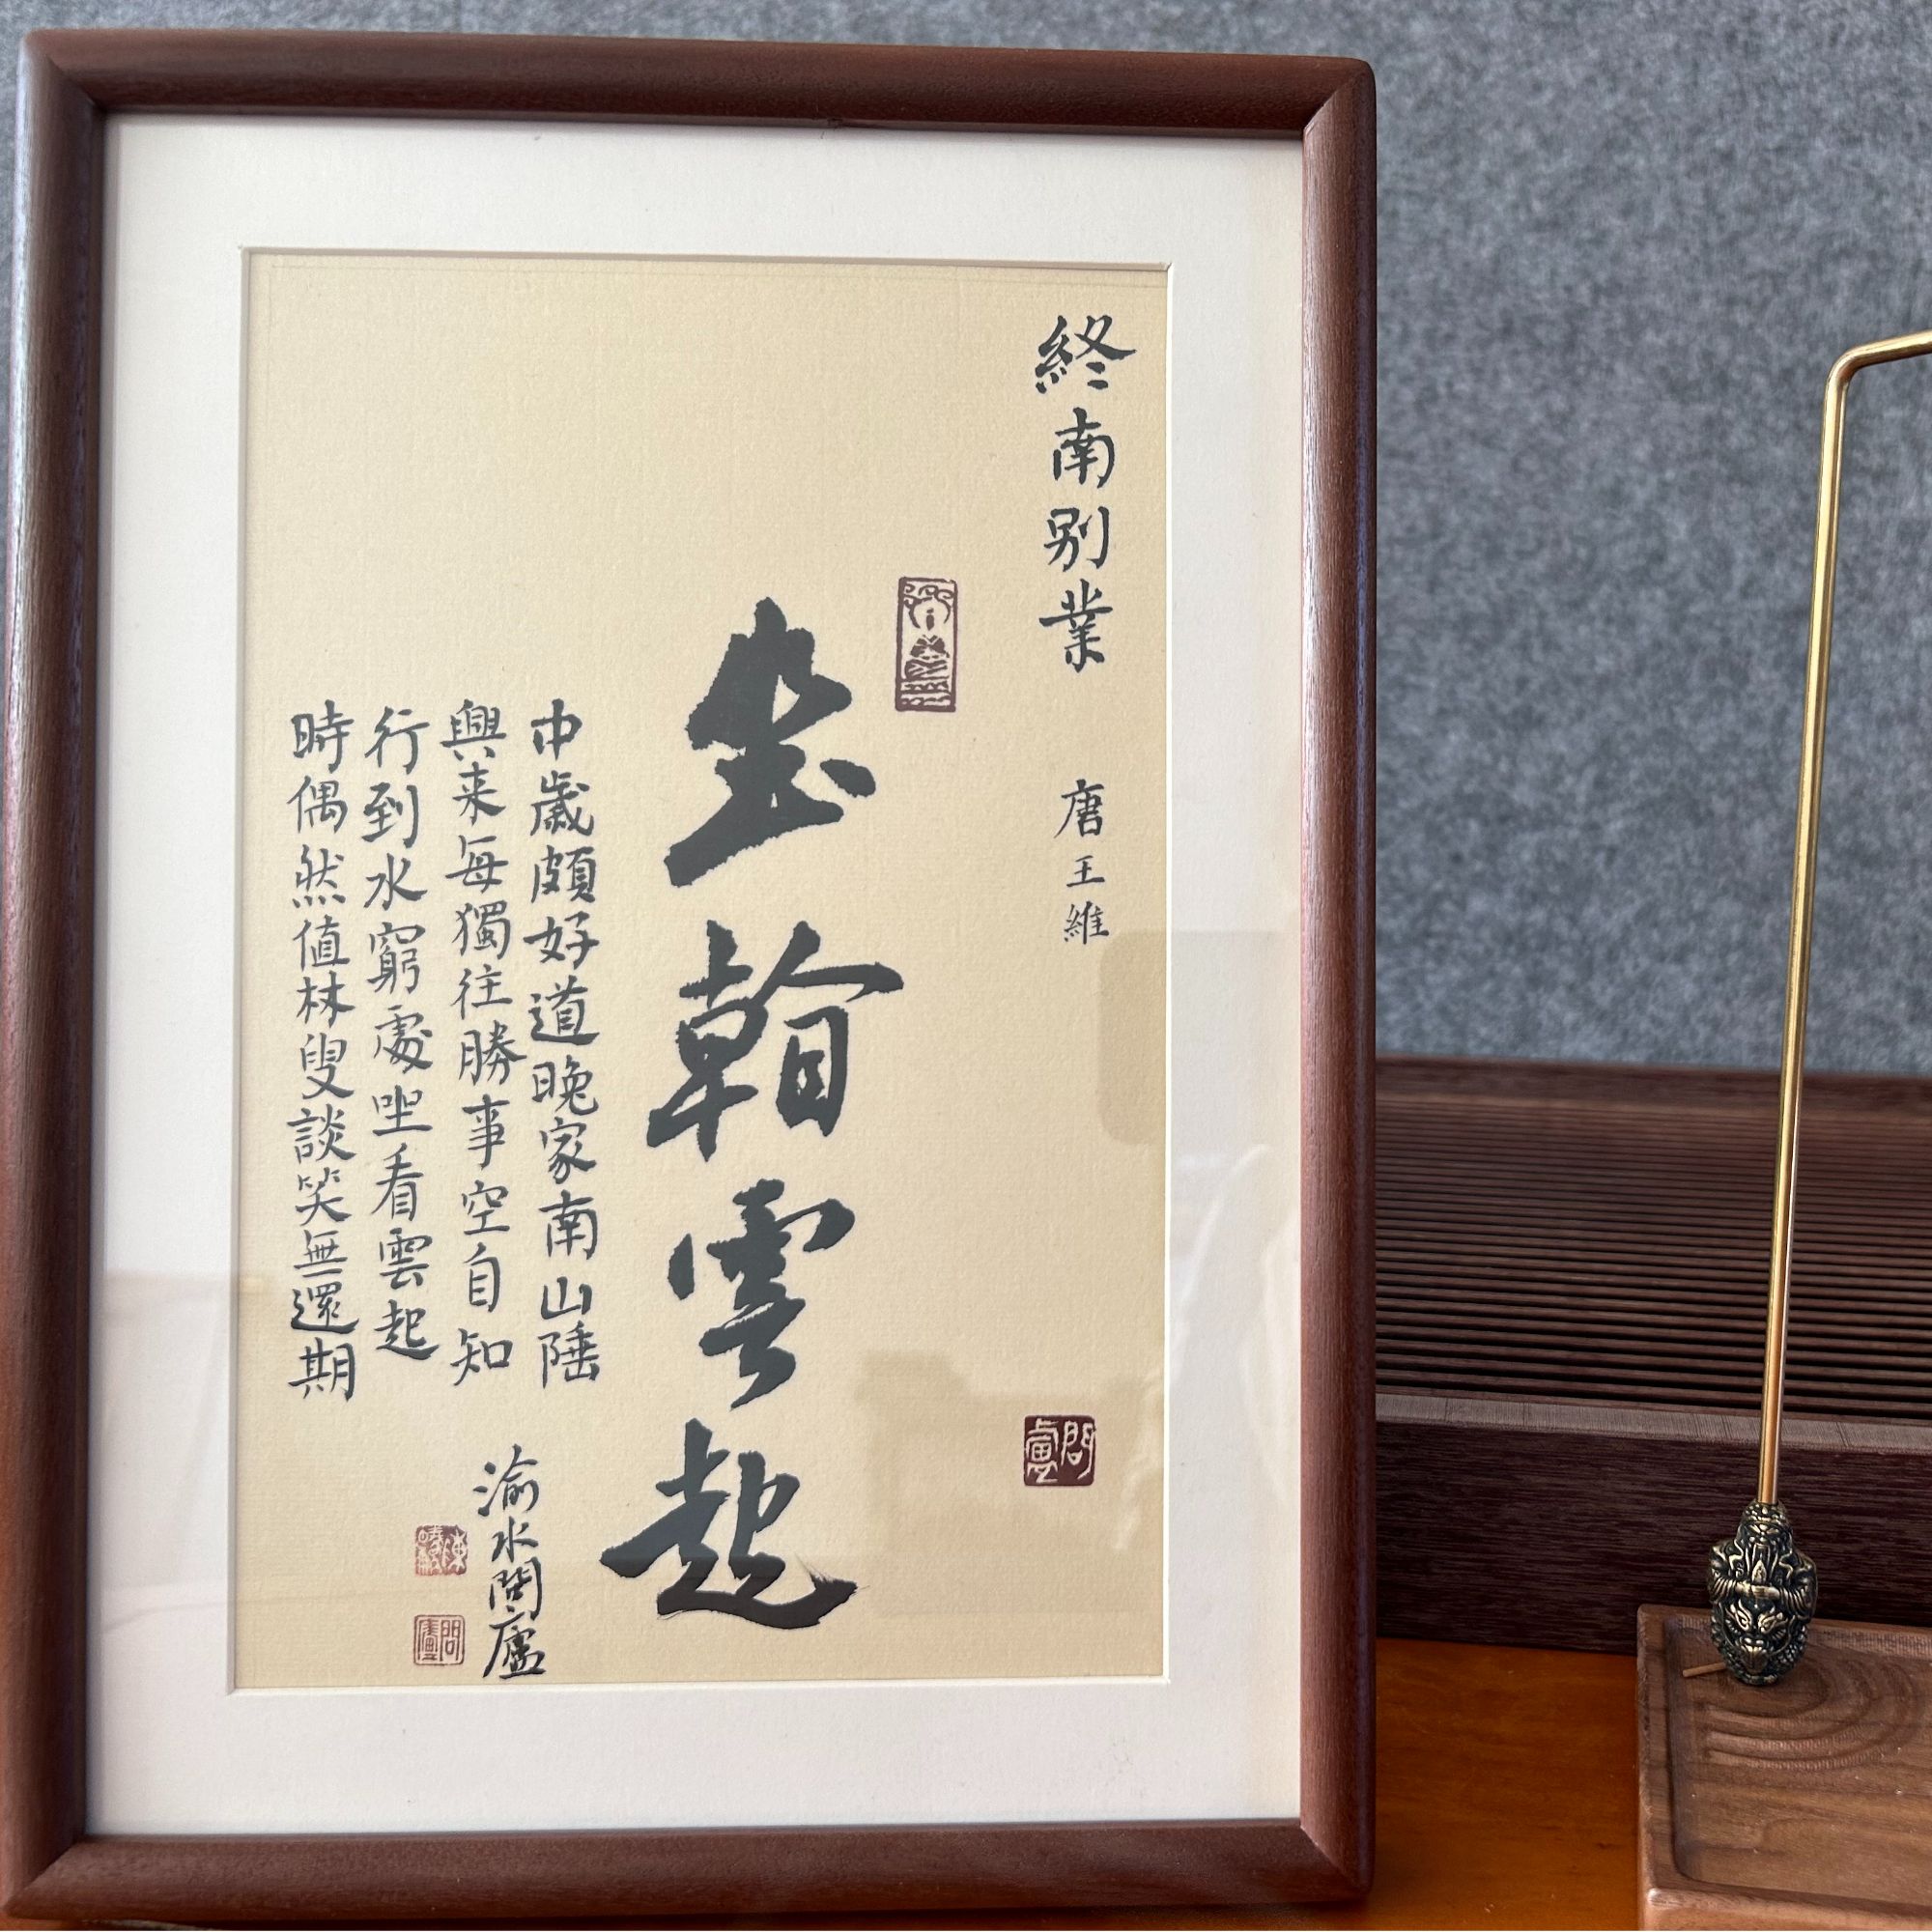 終南別業 唐 王維
坐看雲起
中歲頗好道晚家南山陲
興来每獨往勝事空自知
行到水窮處坐看雲起
時偶然值林叟談笑無還期
渝水問廬
問廬
問廬